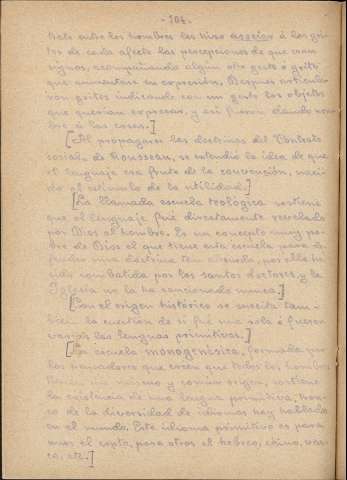 - 104 -
trato entre los hombres les hizo asociar á los gri-
tos de cada afecto las percepciones de que eran
signos, acompañando algún otro gesto ó grito
que aumentara su expresión. Después articula-
ron gritos indicando con un gesto los objetos
que querían expresar, y así fueron dando nom-
bre á las cosas.]
[Al propagarse las doctrinas del Contrato
social de Rousseau, se extendió la idea de que
el lenguaje era fruto de la convención, naci-
do al estímulo de la utilidad.]
[La llamada escuela teológica sostiene
que el lenguaje fué directamente revelado
por Dios al hombre. Es un concepto muy po-
bre de Dios el que tiene esta escuela para
doctrina tan por ello ha
sido combatida por los santos doctores, y la
Iglesia no la ha sancionado nunca.]
[Con el origen histórico se suscita tam-
bién la cuestión de si fué una sola ó fueron
varias las lenguas primitivas.]
[La escuela monogenésica, formada por
los pensadores que creen que todos los hombres
tienen un mismo y común origen, sostiene
la existencia de una lengua primitiva, tron-
co de la diversidad de idiomas hoy hablados
en el mundo. Este idioma primitivo es para
unos el copto, para otros el hebreo, chino, vas-
co, etc.]